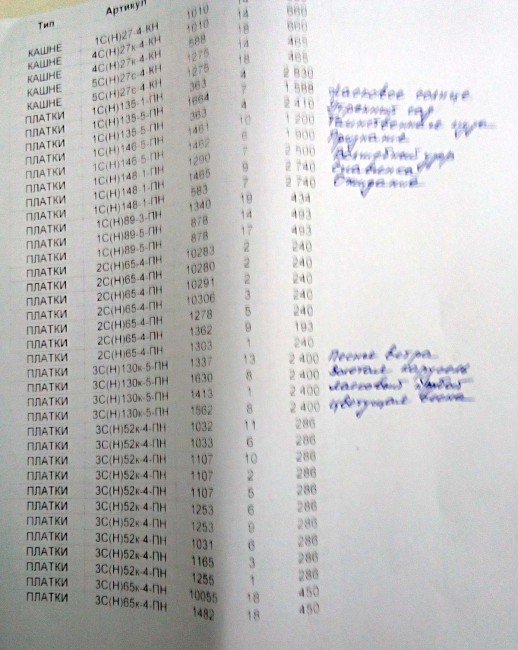 Тип Артикул
1С(Н)27-4-КН 1010 14
КАШНЕ 4С(Н)27к-4-КН 1010 14 660
КАШНЕ 4С(Н)27к-4-КН 588 18 660
КАШНЕ 5С(Н)27с-4-КН 1275 14 465
КАШНЕ 5С(Н)27с-4-КН 1275 18 465
КАШНЕ 1С(Н)135-1-ПН 363 4 2 830
ПЛАТКИ 1С(Н)135-5-ПН 1664 7 1 588 Ласковое солнце
ПЛАТКИ 1С(Н)135-5-ПН 363 4 2 410 Утренний сад
ПЛАТКИ 1С(Н)146-5-ПН 1461 10 1 200 Таинственные узоры
ПЛАТКИ 1С(Н)146-5-ПН 1462 6 1 900
ПЛАТКИ 1С(Н)148-1-ПН 1290 7 2 500 Волшебный узор
ПЛАТКИ 1С(Н)148-1-ПН 1465 9 2 740 Славянка
ПЛАТКИ 1С(Н)148-1-ПН 583 7 2 740 Ожидание
ПЛАТКИ 1С(Н)89-3-ПН 1340 19 434
ПЛАТКИ 1С(Н)89-5-ПН 878 14 493
ПЛАТКИ 1С(Н)89-5-ПН 878 17 493
ПЛАТКИ 2С(Н)65-4-ПН 10283 2 240
ПЛАТКИ 2С(Н)65-4-ПН 10280 2 240
ПЛАТКИ 2С(Н)65-4-ПН 10291 2 240
ПЛАТКИ 2С(Н)65-4-ПН 10306 3 240
ПЛАТКИ 2С(Н)65-4-ПН 1278 5 240
ПЛАТКИ 2С(Н)65-4-ПН 1362 9 193
ПЛАТКИ 2С(Н)65-4-ПН 1303 1 240
ПЛАТКИ 3С(Н)130к-5-ПН 1337 13 2 400 Песнь ветра
ПЛАТКИ 3С(Н)130к-5-ПН 1630 8 2 400
ПЛАТКИ 3С(Н)130к-5-ПН 1413 1 2 400 Ласковый прибой
ПЛАТКИ 3С(Н)130к-5-ПН 1562 8 2 400 Цветущая весна
ПЛАТКИ 3С(Н)52к-4-ПН 1032 11 286
ПЛАТКИ 3С(Н)52к-4-ПН 1033 6 286
ПЛАТКИ 3С(Н)52к-4-ПН 1107 10 286
ПЛАТКИ 3С(Н)52к-4-ПН 1107 2 286
ПЛАТКИ 3С(Н)52к-4-ПН 1107 5 286
ПЛАТКИ 3С(Н)52к-4-ПН 1253 6 286
ПЛАТКИ 3С(Н)52к-4-ПН 1253 9 286
ПЛАТКИ 3С(Н)52к-4-ПН 1031 6 286
ПЛАТКИ 3С(Н)52к-4-ПН 1165 3 286
ПЛАТКИ 3С(Н)52к-4-ПН 1255 1 286
ПЛАТКИ 3С(Н)65к-4-ПН 10055 18 450
ПЛАТКИ 3С(Н)65к-4-ПН 1482 18 450